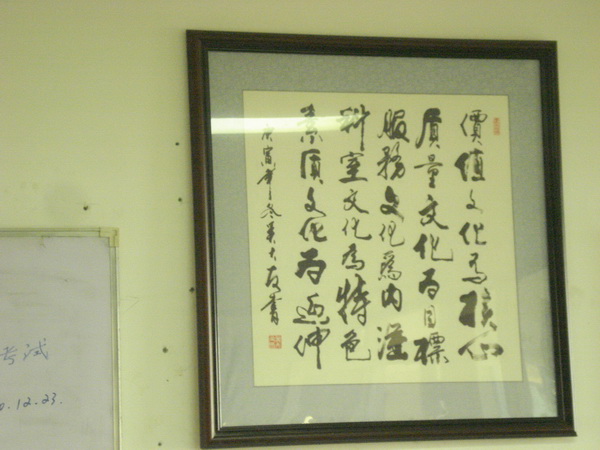 價值文化為核心
質量文化為目標
服務文化為內涵
科室文化為特色
素質文化為延伸
庚寅年冬吴大書
考试
0.12.23.